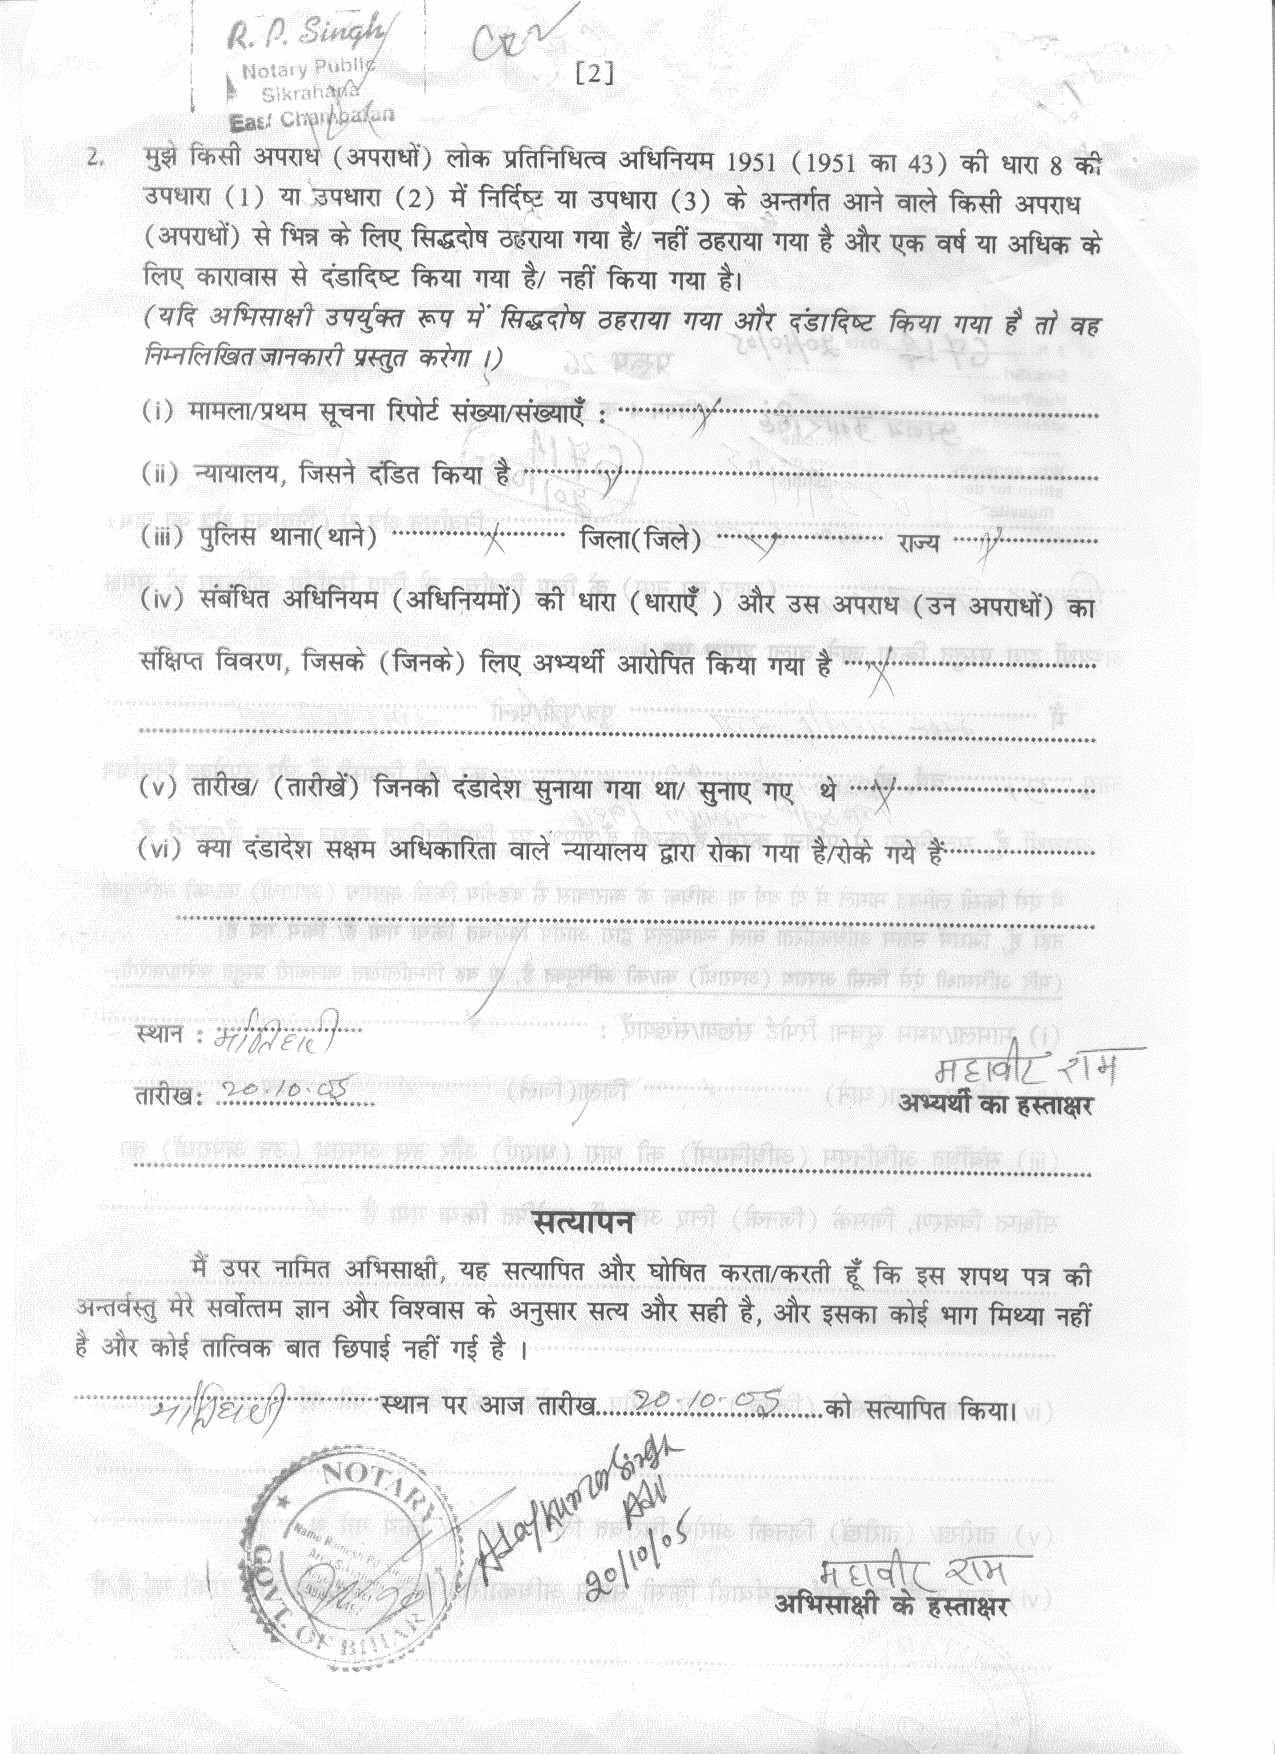 R. P. Singh
Notary Public
Sikrahana
East Champaran
[2]
2. मुझे किसी अपराध (अपराधों) लोक प्रतिनिधित्व अधिनियम 1951 (1951 का 43) की धारा 8 की
उपधारा (1) या उपधारा (2) में निर्दिष्ट या उपधारा (3) के अन्तर्गत आने वाले किसी अपराध
(अपराधों) से भिन्न के लिए सिद्धदोष ठहराया गया है/ नहीं ठहराया गया है और एक वर्ष या अधिक के
लिए कारावास से दंडादिष्ट किया गया है/ नहीं किया गया है।
(यदि अभिसाक्षी उपर्युक्त रूप में सिद्धदोष ठहराया गया और दंडादिष्ट किया गया है तो वह
निम्नलिखित जानकारी प्रस्तुत करेगा ।)
(i) मामला/प्रथम सूचना रिपोर्ट संख्या/संख्याएँ : x
(ii) न्यायालय, जिसने दंडित किया है x
(iii) पुलिस थाना(थाने) x जिला(जिले) x राज्य x
(iv) संबंधित अधिनियम (अधिनियमों) की धारा (धाराएँ ) और उस अपराध (उन अपराधों) का
संक्षिप्त विवरण, जिसके (जिनके) लिए अभ्यर्थी आरोपित किया गया है x
(v) तारीख/ (तारीखें) जिनको दंडादेश सुनाया गया था/ सुनाए गए थे x
(vi) क्या दंडादेश सक्षम अधिकारिता वाले न्यायालय द्वारा रोका गया है/रोके गये हैं
स्थान : मोतिहारी
तारीख: 20.10.05
महावीर राम
अभ्यर्थी का हस्ताक्षर
सत्यापन
मैं उपर नामित अभिसाक्षी, यह सत्यापित और घोषित करता/करती हूँ कि इस शपथ पत्र की
अन्तर्वस्तु मेरे सर्वोत्तम ज्ञान और विश्वास के अनुसार सत्य और सही है, और इसका कोई भाग मिथ्या नहीं
है और कोई तात्विक बात छिपाई नहीं गई है ।
मोतिहारी स्थान पर आज तारीख 20.10.05 को सत्यापित किया।
NOTARY
GOVT. OF BIHAR
Ajay Kumar Singh
Adv
20/10/05
महावीर राम
अभिसाक्षी के हस्ताक्षर